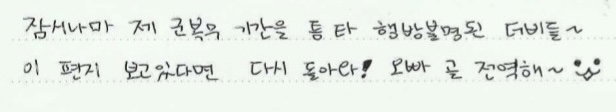 잠시나마 제 군복무 기간을 틈 타 행방불명된 더비들~
이 편지 보고있다면 다시 돌아와! 오빠 곧 전역해~